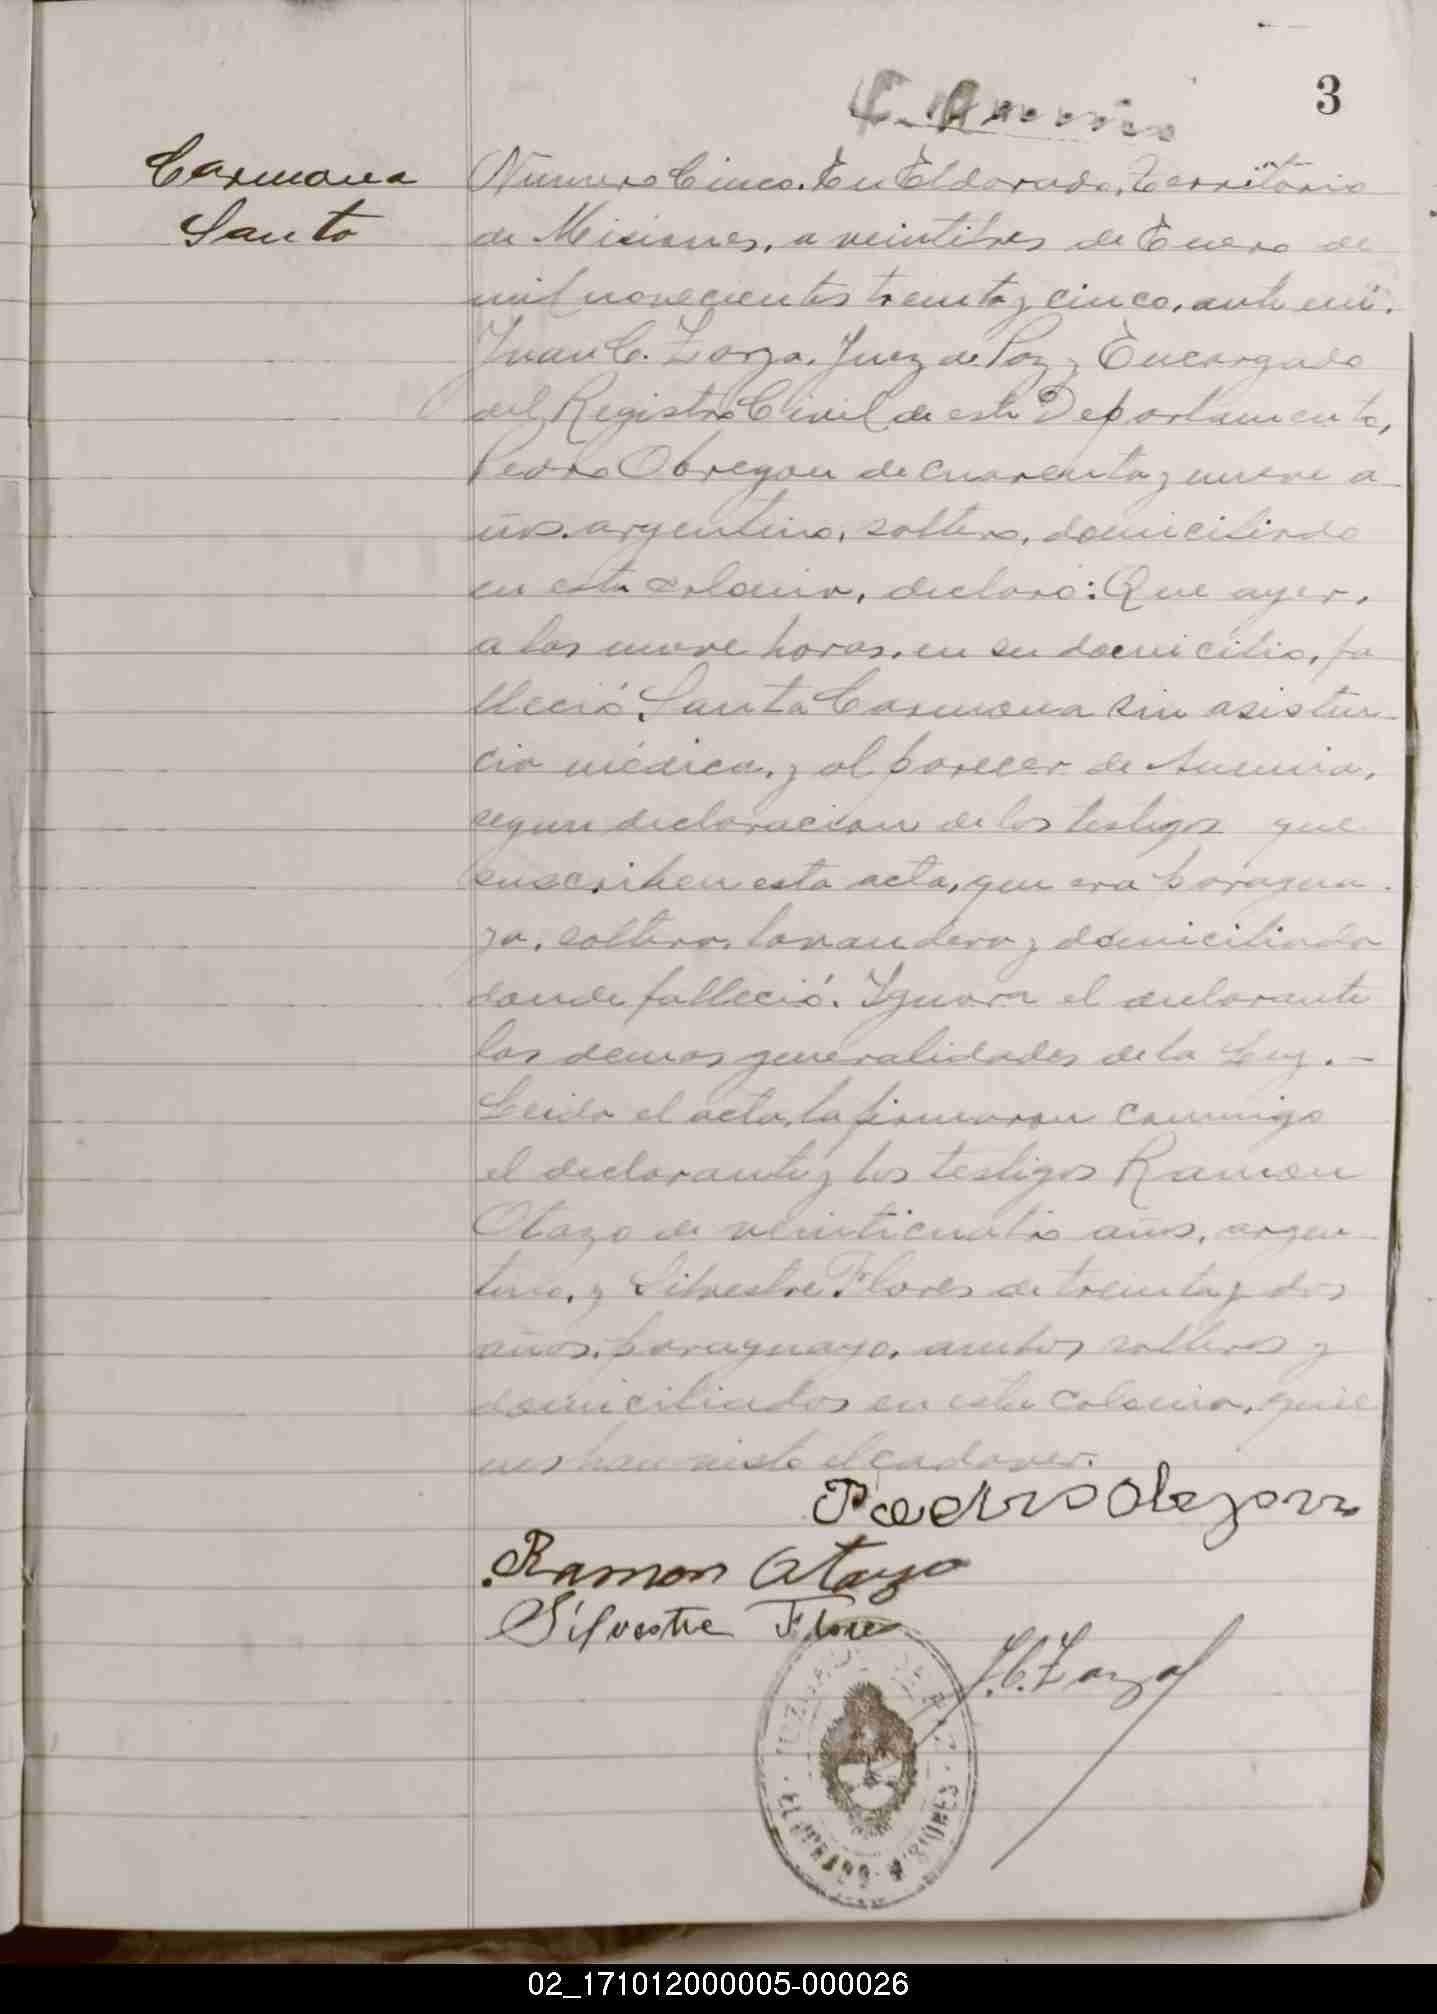 3
Carmona
Santa
Número Cinco. En Eldorado, Territorio
de Misiones, a veintitres de Enero de
mil novecientos treinta y cinco, ante mi.
Juan C. Zarza, Juez de Paz y Encargado
del Registro Civil de este Departamento,
Pedro Obregon de cuarenta y nueve a-
ños, argentino, soltero, domiciliado
en esta colonia, declaró: Que ayer,
a las nueve horas, en su domicilio, fa
lleció Santa Carmona sin asisten-
cia médica, y al parecer de Anemia,
segun declaracion de los testigos que
suscriben esta acta, que era paragua
ya, soltera, lavandera y domiciliada
donde falleció. Ignora el declarante
las demas generalidades de la Ley. -
Leida el acta, la firmaron conmigo
el declarante y los testigos Ramon
Otazo de veinticuatro años, argen-
tino, y Silvestre Flores de treinta y dos
años, paraguayo, ambos solteros y
domiciliados en esta colonia, quie
nes han visto el cadaver.
Pedro Obregon
Ramon Otazo
Silvestre Flores
J. C. Zarza
JUZGADO DE PAZ
ELDORADO - MISIONES
02_171012000005-000026